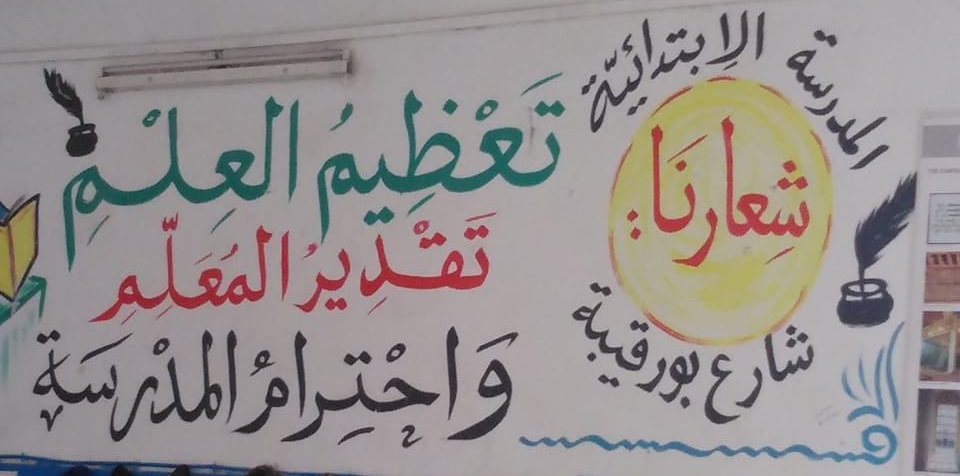 المدرسة الإبتدائيّة
شِعارنَا:
شارع بورقيبة
تَعْظِيمُ العِلْمِ
تَقْدِيرُ المُعَلِّمِ
وَاحْتِرامُ المَدْرسَة